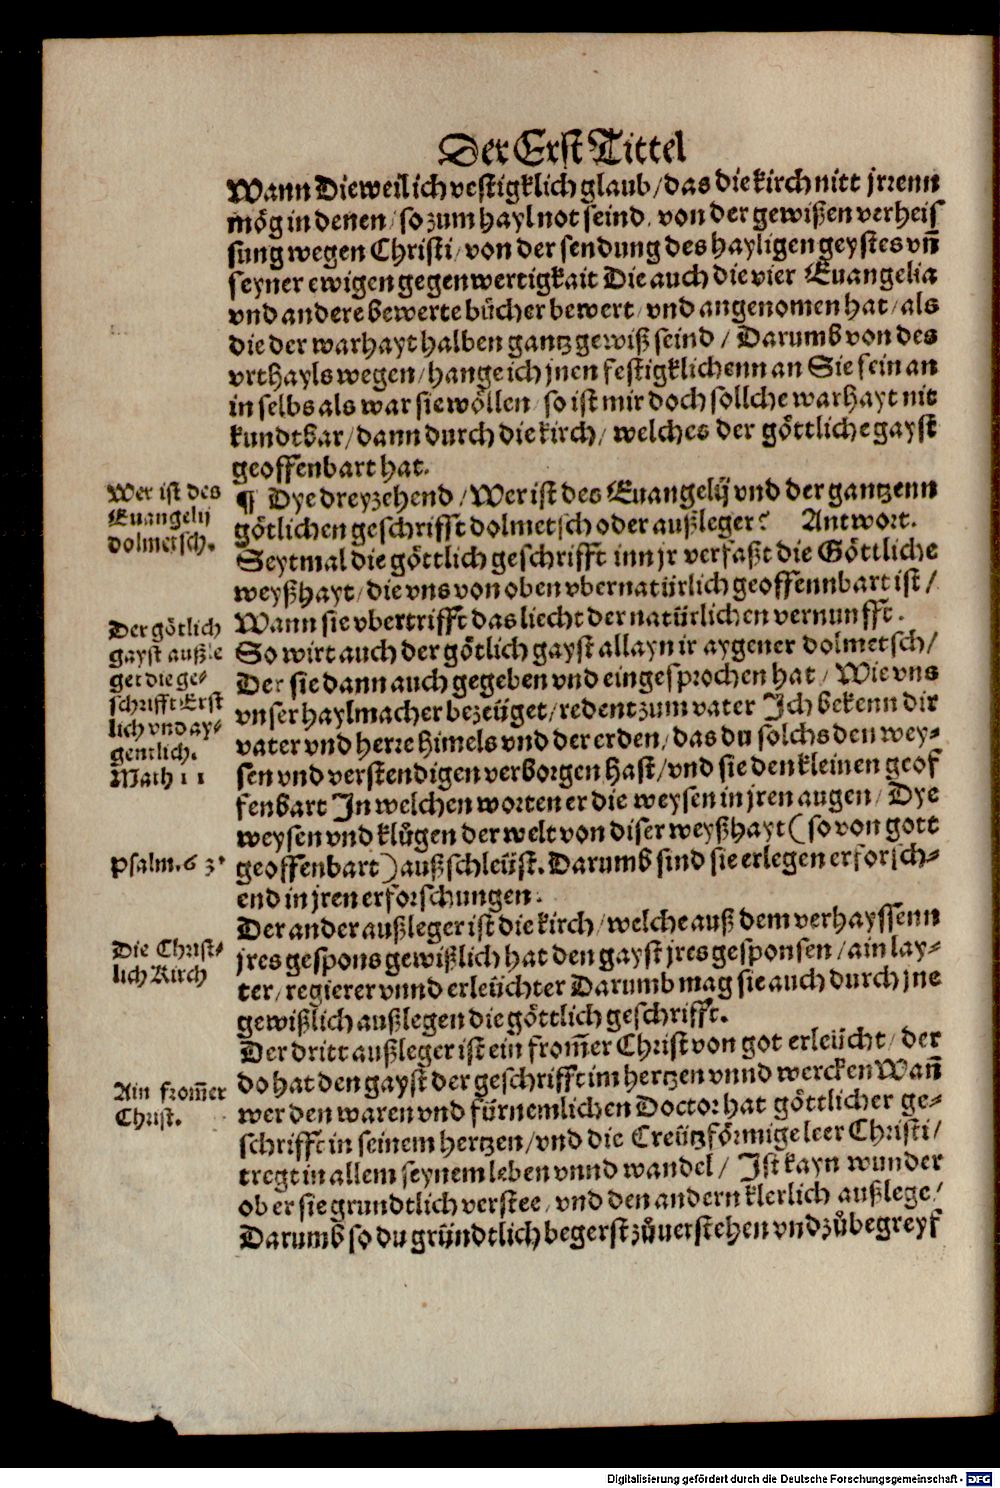 Der Erst Tittel
Wann Dieweil ich vestigklich glaub / das die kirch nitt jrrenn
mög in denen / so zum hayl not seind / von der gewißen verheis
sung wegen Christi / von der sendung des hayligen geystes vñ
seyner ewigen gegenwertigkait Die auch die vier Euangelia
vnd andere bewerte bücher bewert / vnd angenomen hat / als
die der warhayt halben gantz gewiß seind / Darumb von des
vrthayls wegen / hange ich jnen festigklichenn an Sie sein an
in selbs als war sie wöllen / so ist mir doch sollche warhayt nit
kundtbar / dann durch die kirch / welches der göttliche gayst
geoffenbart hat.
Wer ist des
Euangelij
dolmetsch.
¶ Dye dreyzehend / Wer ist des Euangelij vnd der gantzenn
götlichen geschrifft dolmetsch oder außleger? Antwort.
Seytmal die göttlich geschrifft inn jr verfaßt die Göttliche
weyßhayt / die vns von oben vbernatürlich geoffennbart ist /
Wann sie vbertrifft das liecht der natürlichen vernunfft.
Der götlich
gayst außle
get die ge-
schrifft Erst
lich vnd ay-
gentlich.
Math 11
So wirt auch der götlich gayst allayn ir aygener dolmetsch /
Der sie dann auch gegeben vnd eingesprochen hat / Wie vns
vnser haylmacher bezeüget / redent zum vater Ich bekenn dir
vater vnd herre himels vnd der erden / das du solchs den wey-
sen vnd verstendigen verborgen hast / vnd sie den kleinen geof
fenbart In welchen worten er die weysen in jren augen / Dye
weysen vnd klůgen der welt von diser weyßhayt ( so von gott
Psalm. 63.
geoffenbart ) außschleüst. Darumb sind sie erlegen erforsch-
end in jren erforschungen.
Der ander außleger ist die kirch / welche auß dem verhayssenn
Die Christ-
lich Kirch
jres gespons gewißlich hat den gayst jres gesponsen / ain lay-
ter / regierer vnnd erleüchter Darumb mag sie auch durch jne
gewißlich außlegen die göttlich geschrifft.
Der dritt außleger ist ein from̃er Christ von got erleücht / der
Ain from̃er
Christ.
do hat den gayst der geschrifft im hertzen vnnd wercken Wañ
wer den waren vnd fürnemlichen Doctor hat göttlicher ge-
schrifft in seinem hertzen / vnd die Creützförmige leer Christi /
tregt in allem seynem leben vnnd wandel / Ist kayn wunder
ob er sie grundtlich verstee / vnd den andern klerlich außlege /
Darumb so du gründtlich begerst zůuerstehen vnd zůbegreyf
Digitalisierung gefördert durch die Deutsche Forschungsgemeinschaft - DFG